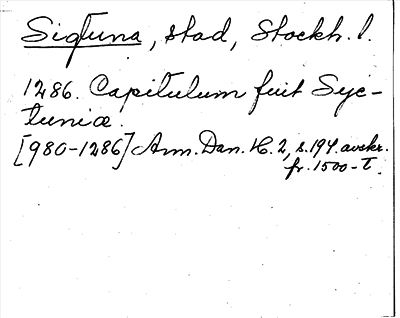 Sigtuna, stad, Stockh. l.
1286. Capitulum fuit Syc-
tuniæ.
[980-1286] Ann. Dan. H. 2, s. 194. avskr.
fr. 1500-t.